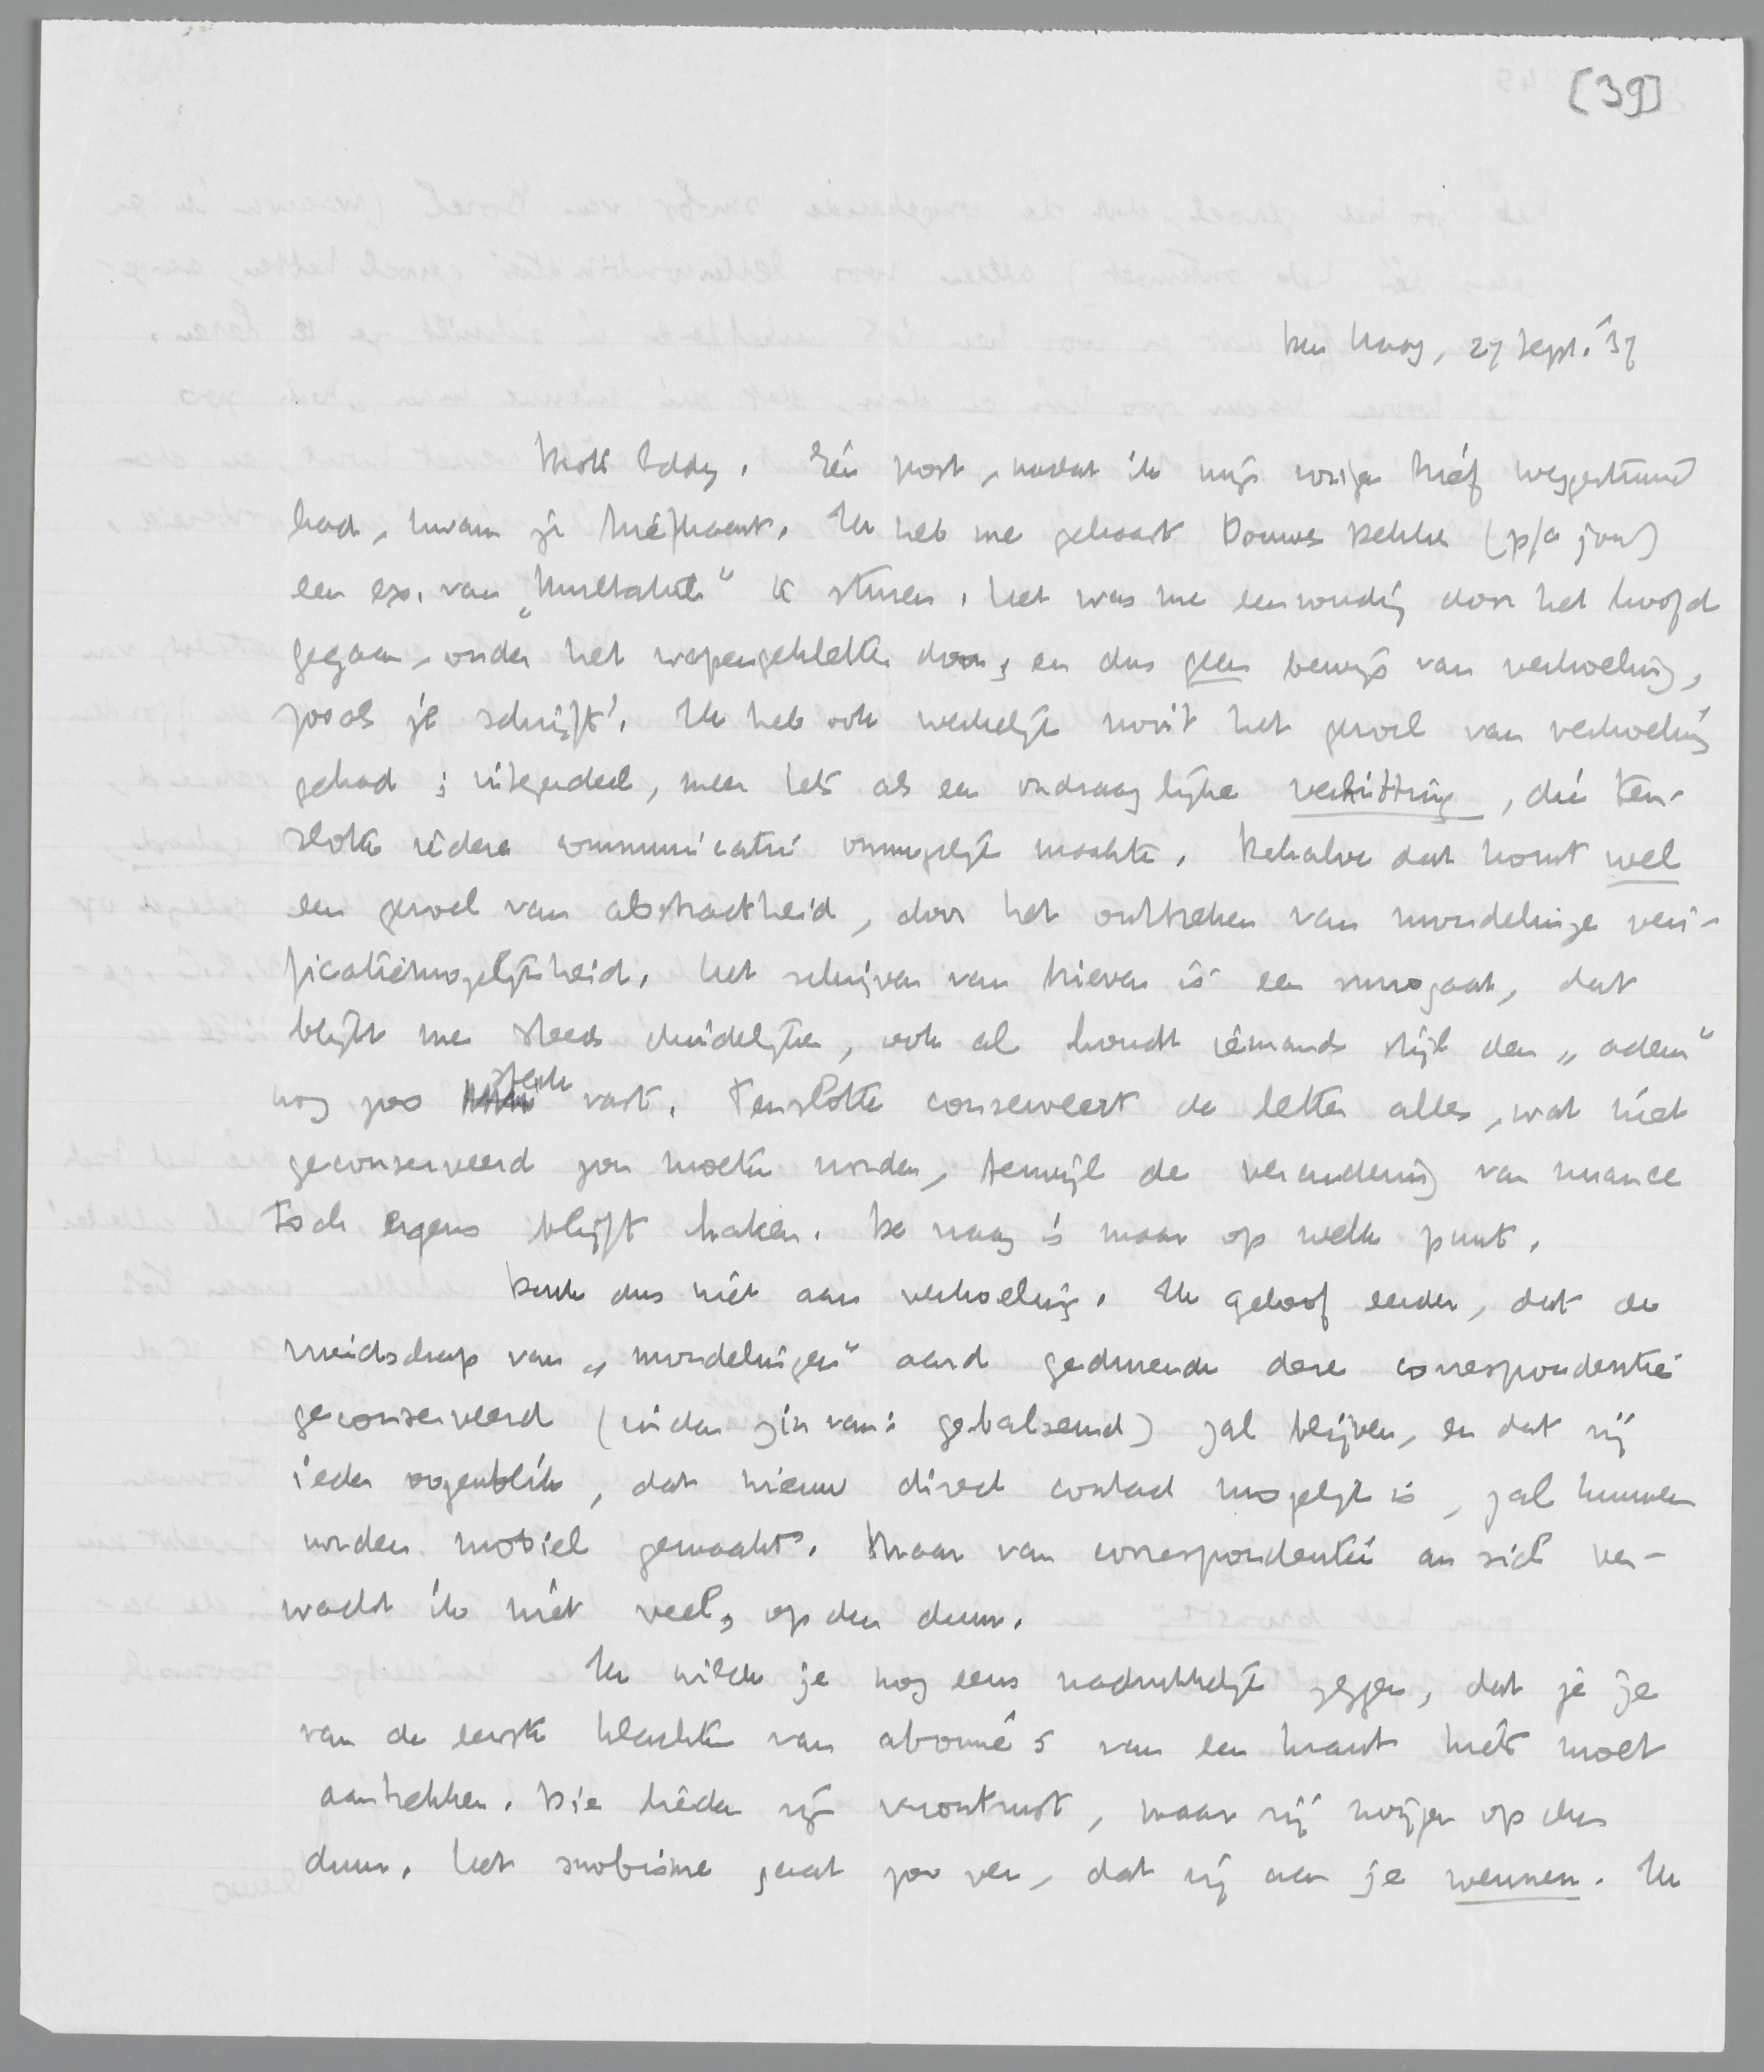 [39]
Den Haag, 27 Sept. '37
Beste Eddy. Eén post, nadat ik mijn vorigen brief weggestuurd
had, kwam je briefkaart. Ik heb me gehaast Douwes Dekker (p/a jou)
een ex. van „Multatuli" te sturen. Het was me eenvoudig door het hoofd
gegaan, onder het wapengekletter door, en dus geen bewijs van verkoeling,
zooals je schrijft. Ik heb ook werkelijk nooit het gevoel van verkoeling
gehad; integendeel, meer iets als een ondraaglijke verhitting, die ten-
slotte iedere communicatie onmogelijk maakte. Behalve dat komt wel
een gevoel van abstractheid, door het onttrekken van mondelinge veri-
ficatiemogelijkheid. Het schrijven van brieven is een surrogaat, dat
blijkt me steeds duidelijker, ook al houdt iemands stijl den „adem"
nog zoo sterk vast. Tenslotte conserveert de letter alles, wat niet
geconserveerd zou moeten worden, terwijl de verandering van nuance
toch ergens blijft haken. De vraag is maar op welk punt.
Denk dus niet aan verkoeling. Ik geloof eerder, dat de
vriendschap van „mondelingen" aard gedurende deze correspondentie
geconserveerd (in den zin van: gebalsemd) zal blijven, en dat zij
ieder oogenblik, dat nieuw direct contact mogelijk is, zal kunnen
worden mobiel gemaakt. Maar van correspondentie an sich ver-
wacht ik niet veel, op den duur.
Ik wilde je nog eens nadrukkelijk zeggen, dat je je
van de eerste klachten van abonné's van een krant niets moet
aantrekken. Die lieden zijn verontrust, maar zij zwijgen op den
duur. Het snobisme gaat zoo ver, dat zij aan je wennen. Ik